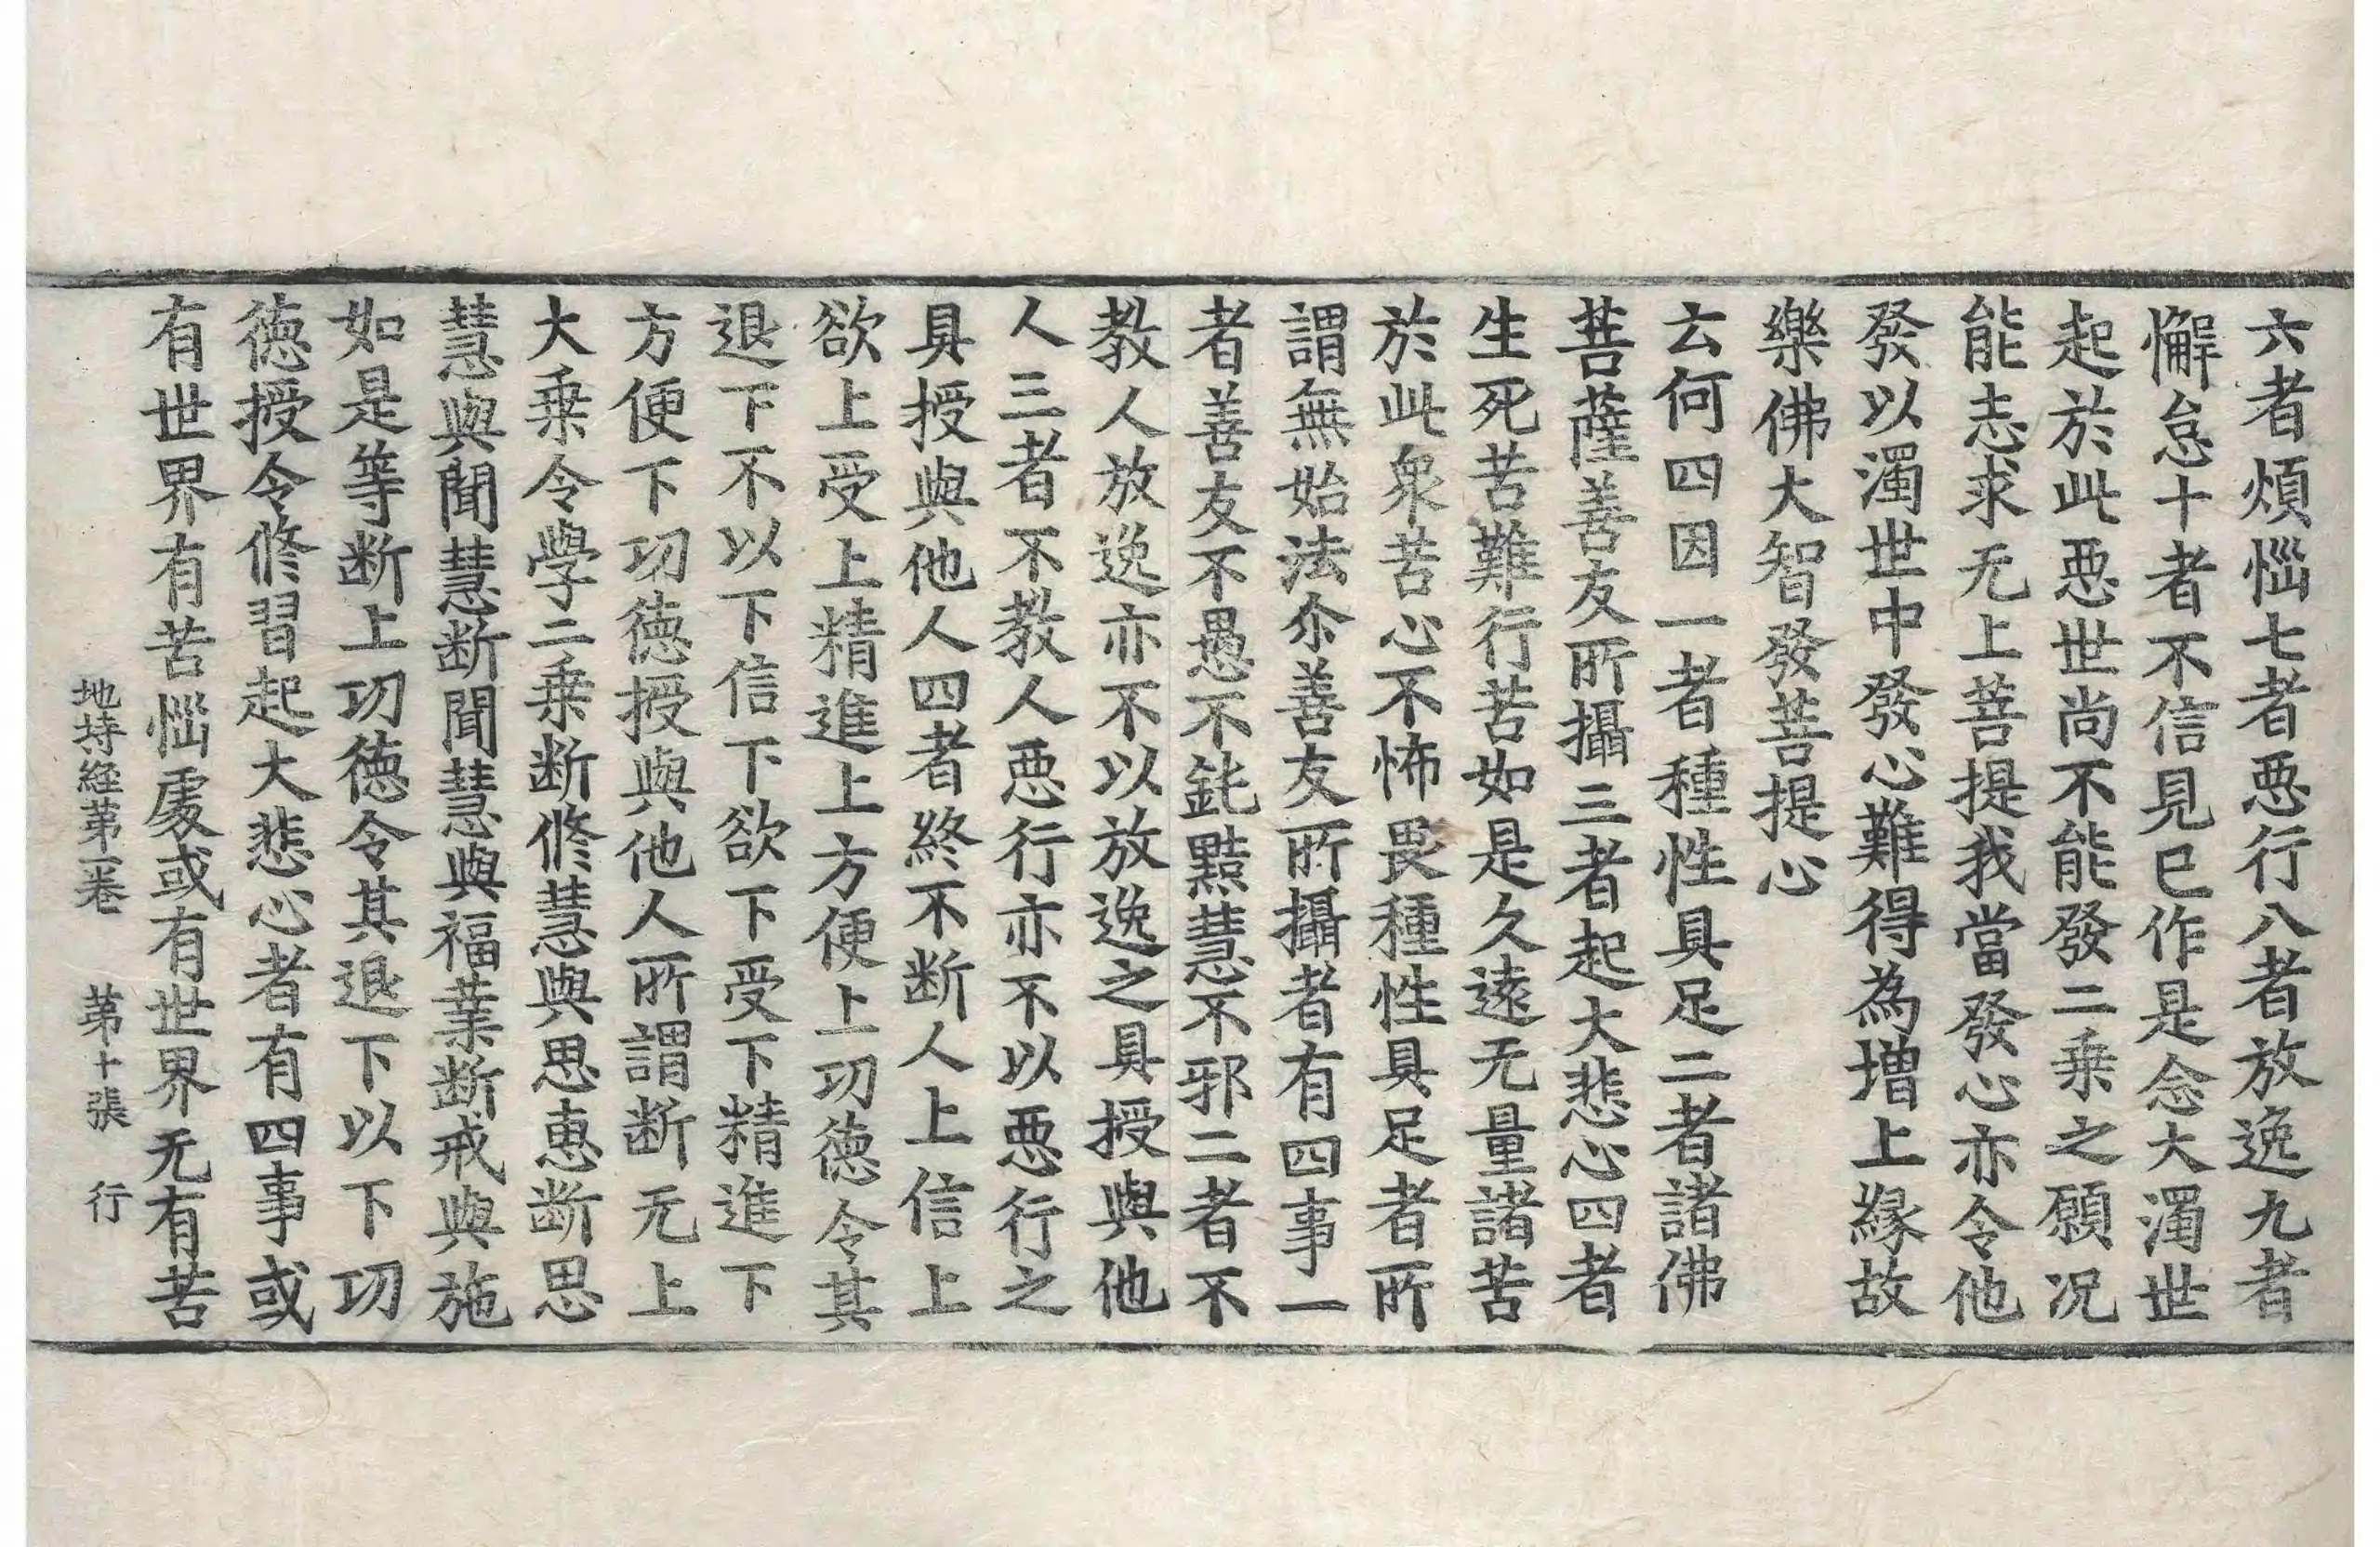 六者煩惱七者惡行八者放逸九者
懈怠十者不信見已作是念大濁世
起於此惡世尚不能發二乘之願況
能志求无上菩提我當發心亦令他
發以濁世中發心難得為增上緣故
樂佛大智發菩提心
云何四因一者種性具足二者諸佛
菩薩善友所攝三者起大悲心四者
生死苦難行苦如是久遠无量諸苦
於此衆苦心不怖畏種性具足者所
謂無始法尒善友所攝者有四事一
者善友不愚不鈍黠慧不邪二者不
教人放逸亦不以放逸之具授與他
人三者不教人惡行亦不以惡行之
具授與他人四者終不断人上信上
欲上受上精進上方便上功德令其
退下不以下信下欲下受下精進下
方便下功德授與他人所謂断无上
大乘令學二乘断修慧與思惠断思
慧與聞慧断聞慧與福業断戒與施
如是等断上功德令其退下以下功
德授令修習起大悲心者有四事或
有世界有苦惱處或有世界无有苦
地持經第一卷 第十張 行